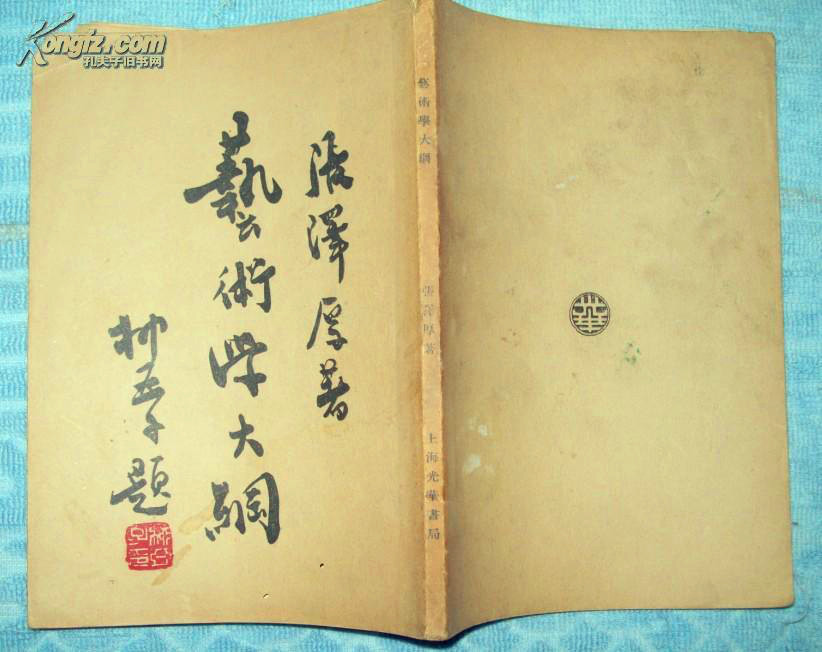 Kongfz.com
孔夫子旧书网
張澤厚著
藝術學大綱
柳亞子題
藝術學大綱
張澤厚著
上海光華書局
華